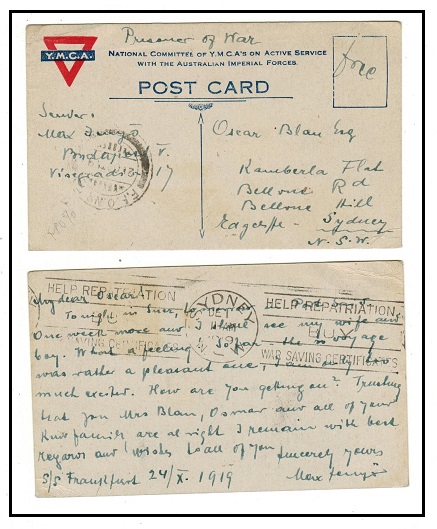 Prisoner of War
Y.M.C.A.
NATIONAL COMMITTEE OF Y.M.C.A'S ON ACTIVE SERVICE
WITH THE AUSTRALIAN IMPERIAL FORCES.
free
POST CARD
Sender:
Max
Budapest V.
17
Oscar Blau Esq
Kamberla Flat
Bellevue Rd
Bellevue Hill
Edgecliffe Sydney
N.S.W.
HELP REPATRIATION
SYDNEY
HELP REPATRIATION
BUY
WAR SAVING CERTIFICATES
My dear Oscar!
Tonight in Suez,
One week more and I shall see my wife and
boy. What a feeling! So far the voyage
was rather a pleasant one, I am only too
much excited. How are you getting on? Trusting
that you Mrs Blau, Osmar and all of your
kind family are al right I remain with best
regards and wishes to all of you
Sincerely yours
S/S Frankfurt 24/X. 1919
Max